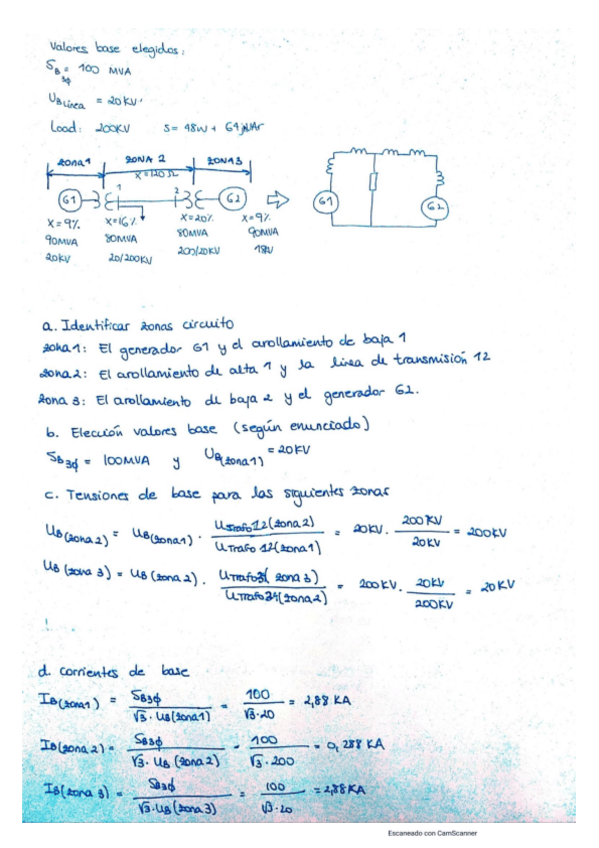 Valores base elegidos:
SB3ϕ = 100 MVA
UBLínea = 20 KV
Load: 200KV S= 48W + 64jVAr
ZONA1 ZONA 2 ZONA 3
X=120Ω
G1 1 2 G2 G1 G2
X=9% X=16% X=20% X=9%
90MVA 80MVA 80MVA 90MVA
20KV 20/200KV 200/20KV 18KV
a. Identificar zonas circuito
zona1: El generador G1 y el arollamiento de baja 1
zona2: El arollamiento de alta 1 y la línea de transmisión 12
zona 3: El arollamiento de baja 2 y el generador G2.
b. Elección valores base (según enunciado)
SB3ϕ = 100MVA y UB(zona1) = 20KV
c. Tensiones de base para las siguientes zonas
UB(zona2) = UB(zona1) · UTrafo12(zona2) / UTrafo 12(zona1) = 20KV · 200 KV / 20KV = 200KV
UB (zona 3) = UB (zona 2) · UTrafo3( zona 3) / UTrafo34(zona2) = 200KV · 20KV / 200KV = 20KV
d. corrientes de base
IB(zona1) = SB3ϕ / √3 · UB(zona1) = 100 / √3·20 = 2,88 KA
IB(zona 2) = SB3ϕ / √3 · UB (zona 2) = 100 / √3 · 200 = 0,288 KA
IB(zona 3) = SB3ϕ / √3 · UB (zona 3) = 100 / √3·20 = 2,88KA
Escaneado con CamScanner